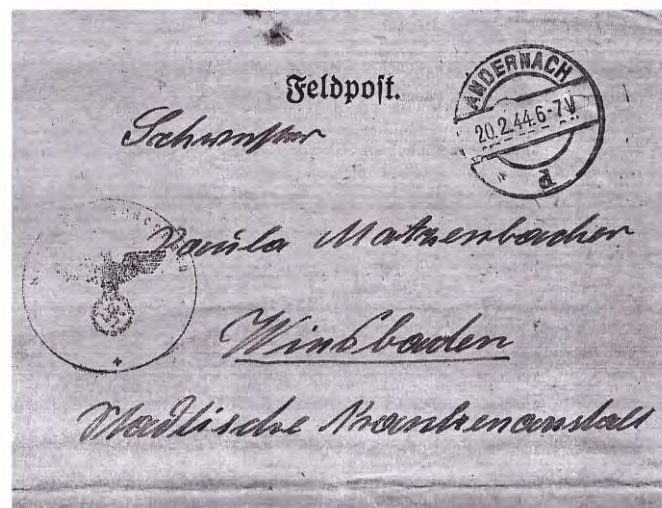 Feldpost.
ANDERNACH
20.2.44.6-7V
d
Schwester
Paula Matzenbacher
Wiesbaden
Städtische Krankenanstalt